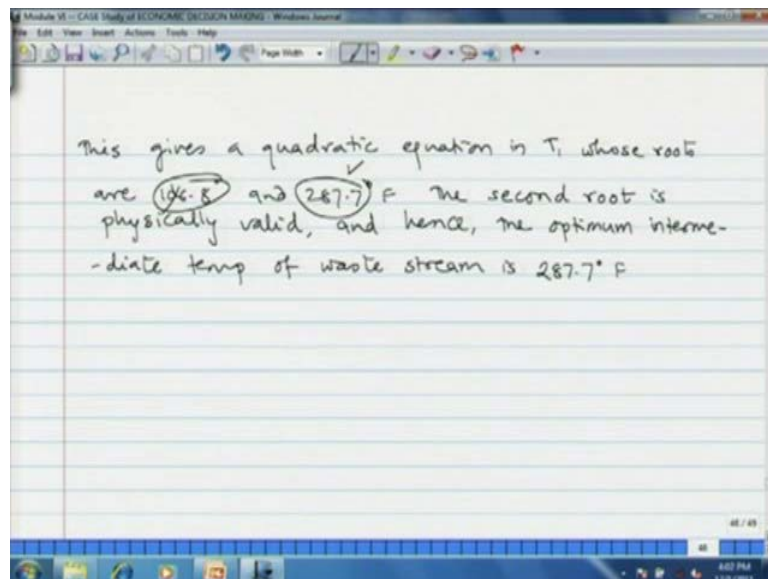 Module VI - CASE Study of ECONOMIC DECISION MAKING - Windows Journal
File Edit View Insert Actions Tools Help
Page Width
This gives a quadratic equation in T₁ whose roots
are and 287.7° F The second root is
physically valid, and hence, the optimum interme-
-diate temp of waste stream is 287.7° F
48 / 49
48
4:02 PM